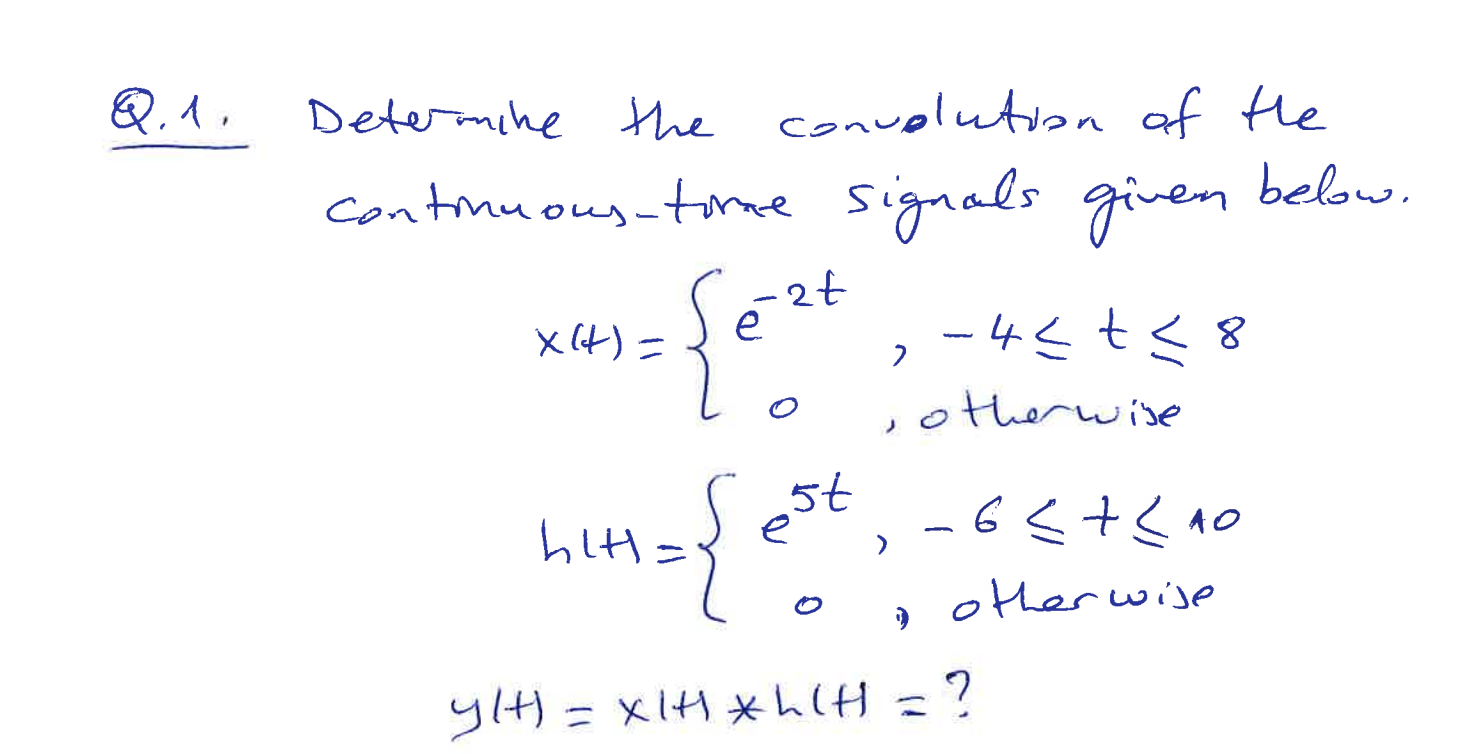 Q.1. Determine the convolution of the
continuous-time signals given below.
x(t) = { e^{-2t} , -4 ≤ t ≤ 8
0 , otherwise
h(t) = { e^{5t} , -6 ≤ t ≤ 10
0 , otherwise
y(t) = x(t) * h(t) = ?